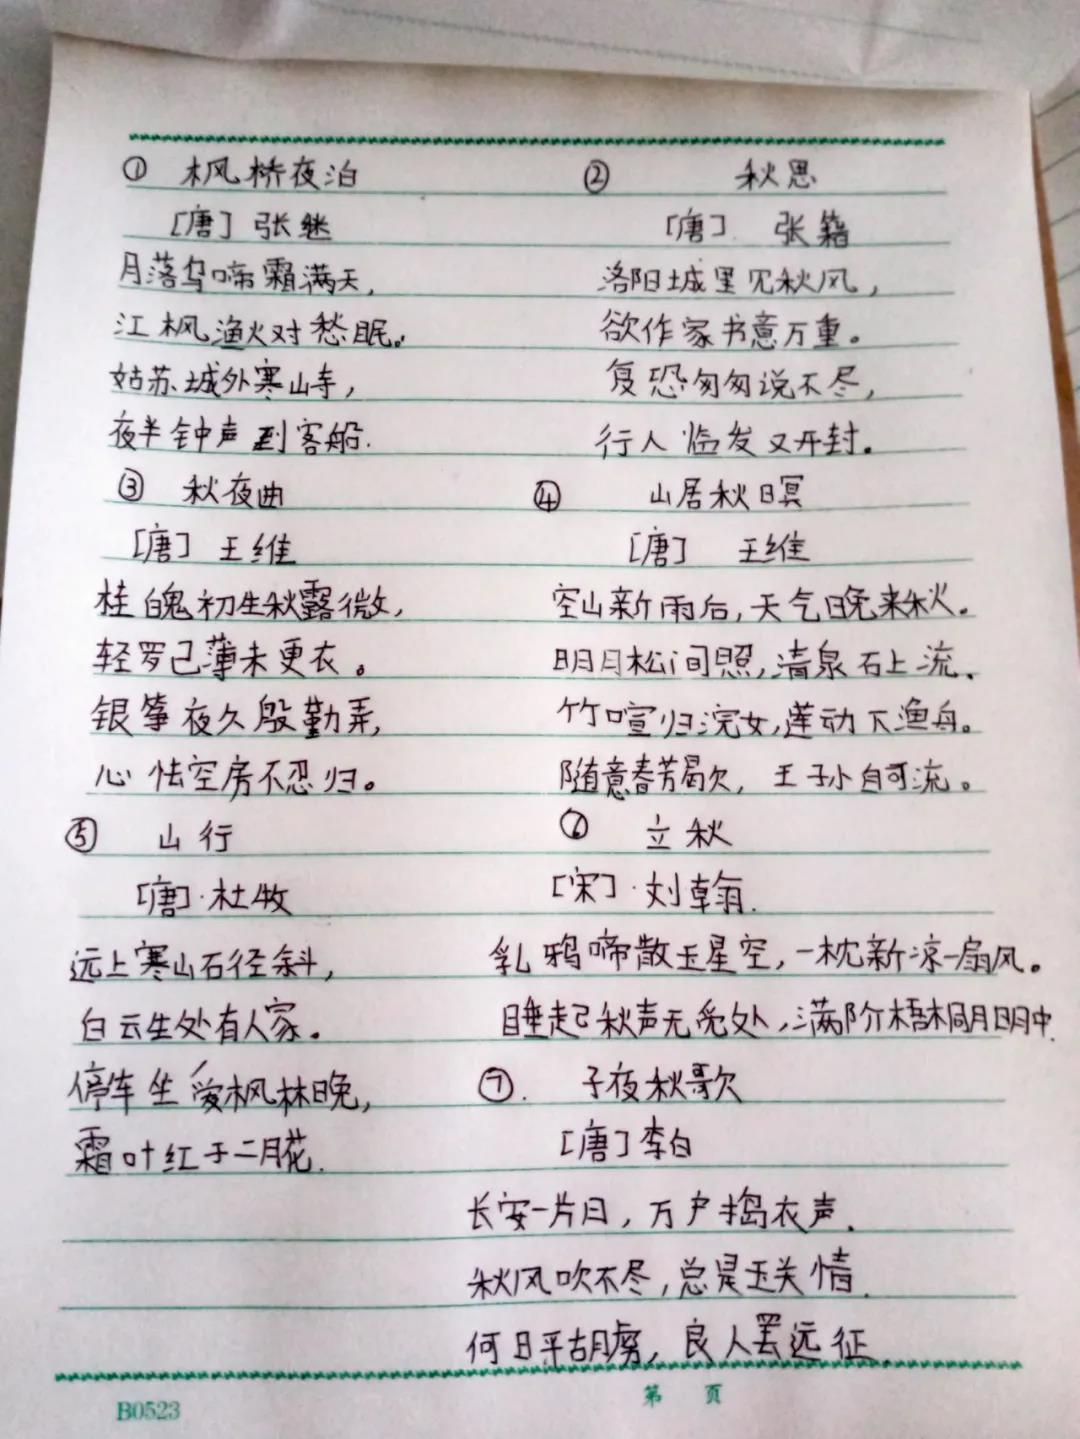 ① 枫桥夜泊
[唐] 张继
月落乌啼霜满天,
江枫渔火对愁眠。
姑苏城外寒山寺,
夜半钟声到客船.
② 秋思
[唐]. 张籍
洛阳城里见秋风,
欲作家书意万重。
复恐匆匆说不尽,
行人临发又开封。
③ 秋夜曲
[唐] 王维
桂魄初生秋露微,
轻罗已薄未更衣。
银筝夜久殷勤弄,
心怯空房不忍归。
④ 山居秋暝
[唐] 王维
空山新雨后,天气晚来秋。
明月松间照,清泉石上流.
竹喧归浣女,莲动下渔舟。
随意春芳歇, 王孙自可流。
⑤ 山行
[唐]·杜牧
远上寒山石径斜,
白云生处有人家。
停车坐爱枫林晚,
霜叶红于二月花.
⑥ 立秋
[宋]·刘翰.
乳鸦啼散玉星空,一枕新凉一扇风。
睡起秋声无觅处,满阶梧桐月明中.
⑦. 子夜秋歌
[唐]李白
长安一片日,万户捣衣声.
秋风吹不尽,总是玉关情.
何日平胡虏,良人罢远征.
第 页
B0523